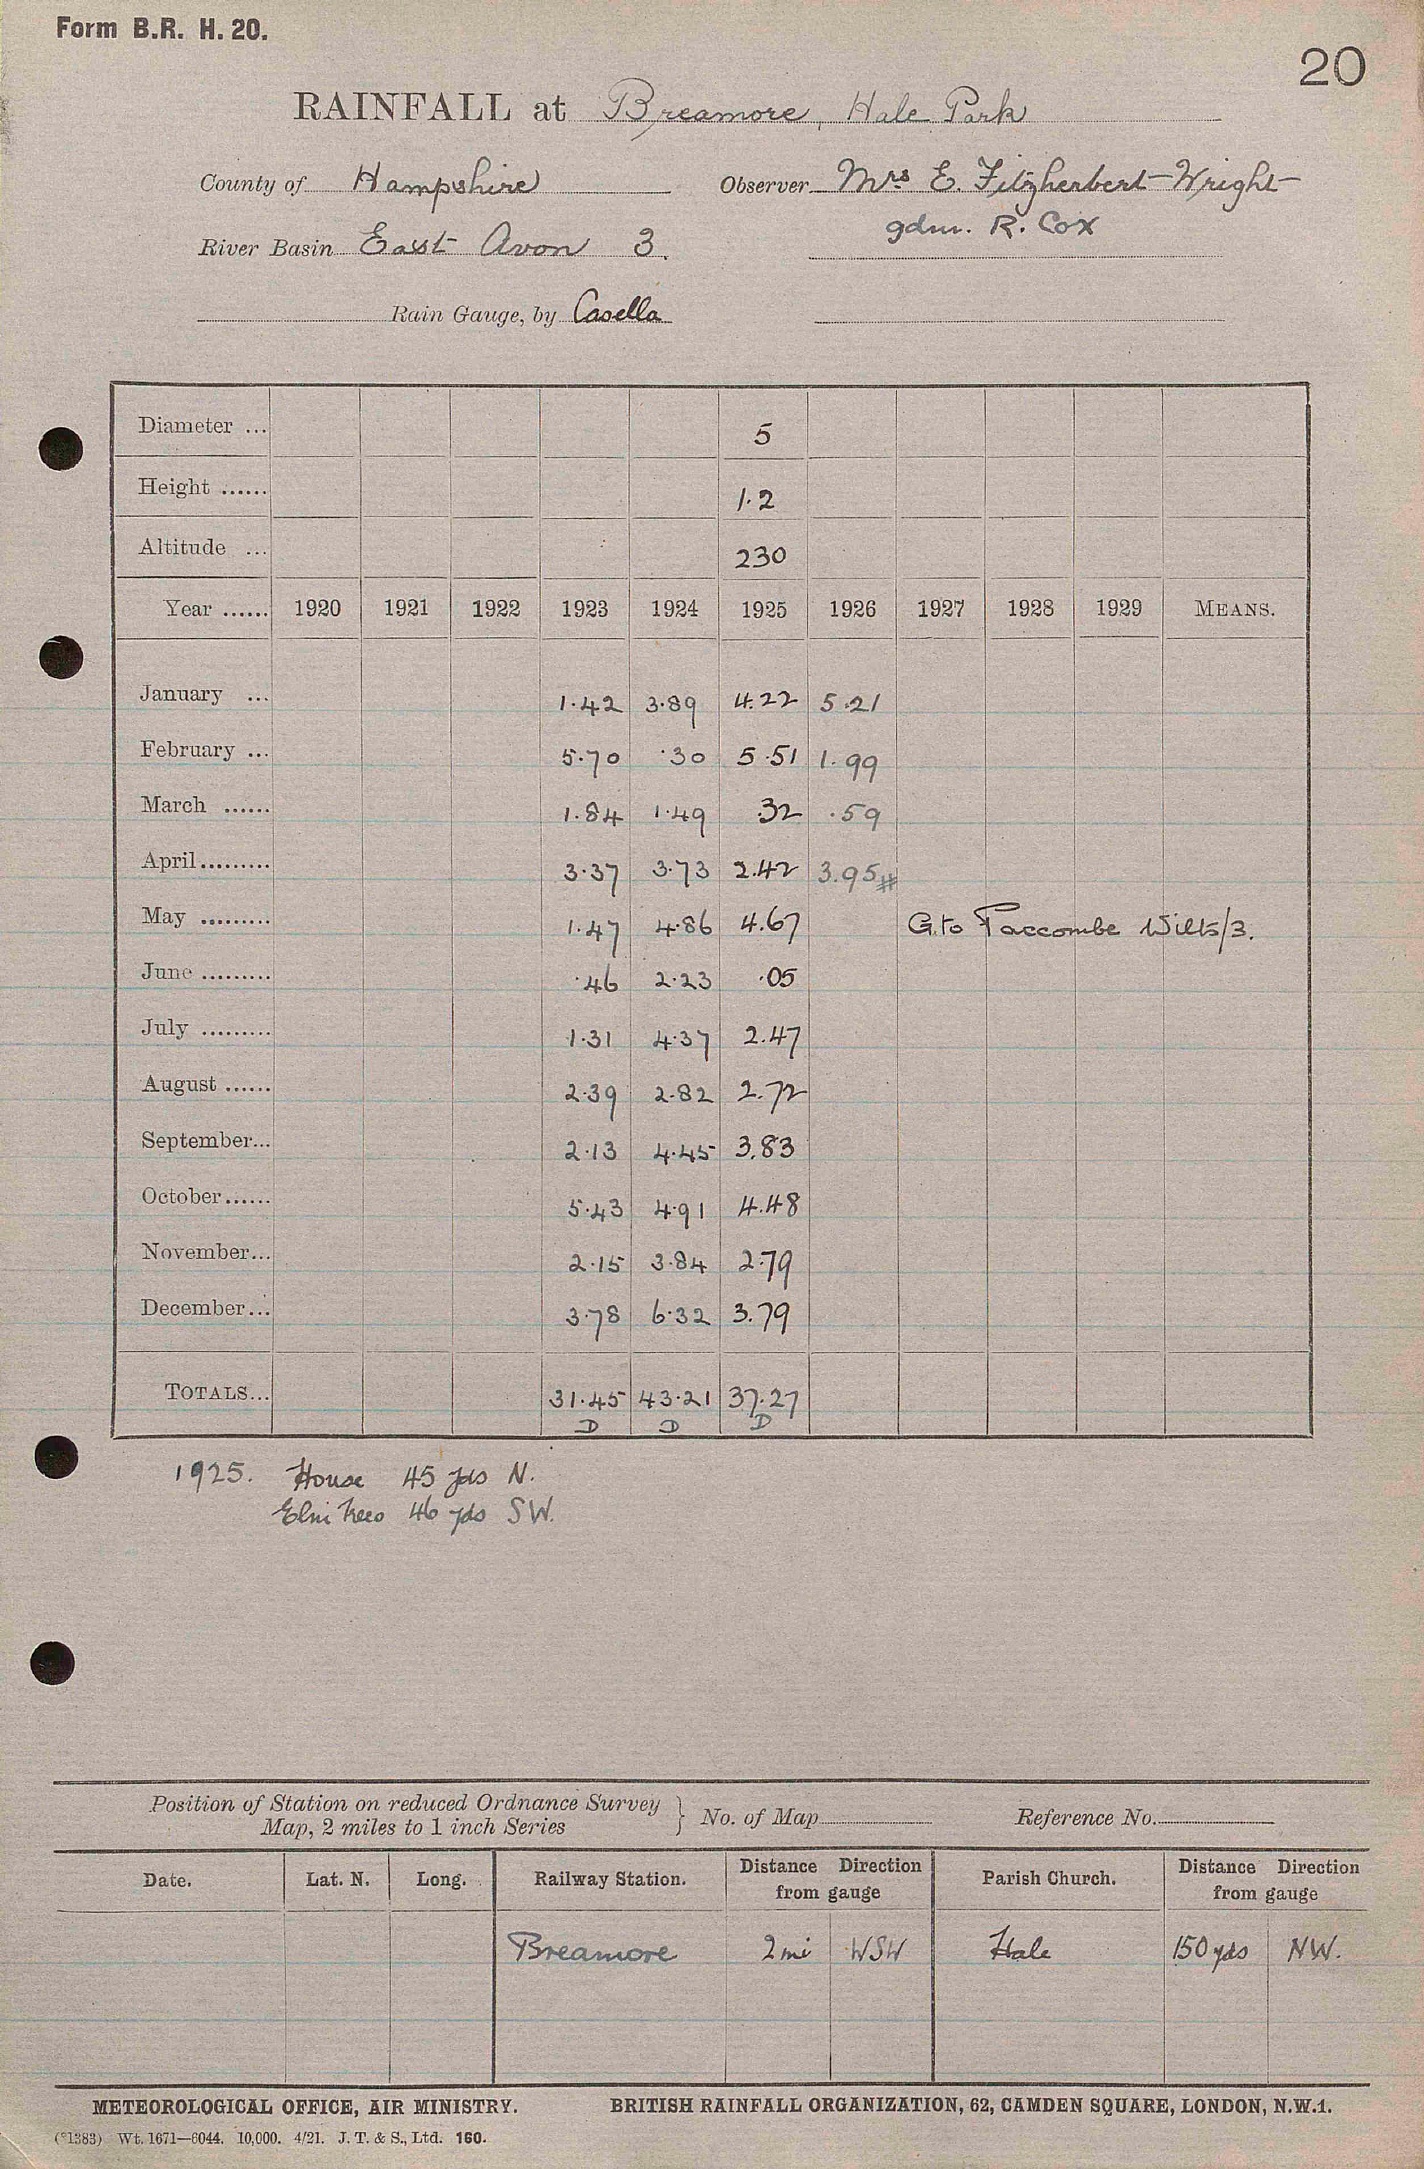 Form B.R. H. 20.
20
RAINFALL at Breamore, Hale Park
County of Hampshire Observer Mrs E. Fitzherbert-Wright
gdnr. R. Cox
River Basin East Avon 3.
Rain Gauge, by Casella
Diameter ... 5
Height ...... 1.2
Altitude ... 230
Year ...... 1920 1921 1922 1923 1924 1925 1926 1927 1928 1929 MEANS.
January ... 1.42 3.89 4.22 5.21
February ... 5.70 .30 5.51 1.99
March ...... 1.84 1.49 .32 .59
April......... 3.37 3.73 2.42 3.95#
May ......... 1.47 4.86 4.67 G. to Paccombe Wilts/3.
June ......... .46 2.23 .05
July ......... 1.31 4.37 2.47
August ...... 2.39 2.82 2.72
September... 2.13 4.45 3.83
October...... 5.43 4.91 4.48
November... 2.15 3.84 2.79
December... 3.78 6.32 3.79
TOTALS... 31.45 43.21 37.27
D D D
1925. House 45 yds N.
Elm trees 46 yds SW.
Position of Station on reduced Ordnance Survey
Map, 2 miles to 1 inch Series } No. of Map Reference No.
Date. Lat. N. Long. Railway Station. Distance Direction from gauge Parish Church. Distance Direction from gauge
Breamore 2 mi WSW Hale 150 yds NW.
METEOROLOGICAL OFFICE, AIR MINISTRY. BRITISH RAINFALL ORGANIZATION, 62, CAMDEN SQUARE, LONDON, N.W.1.
(*1383) Wt. 1671—6044. 10,000. 4/21. J. T. & S., Ltd. 160.